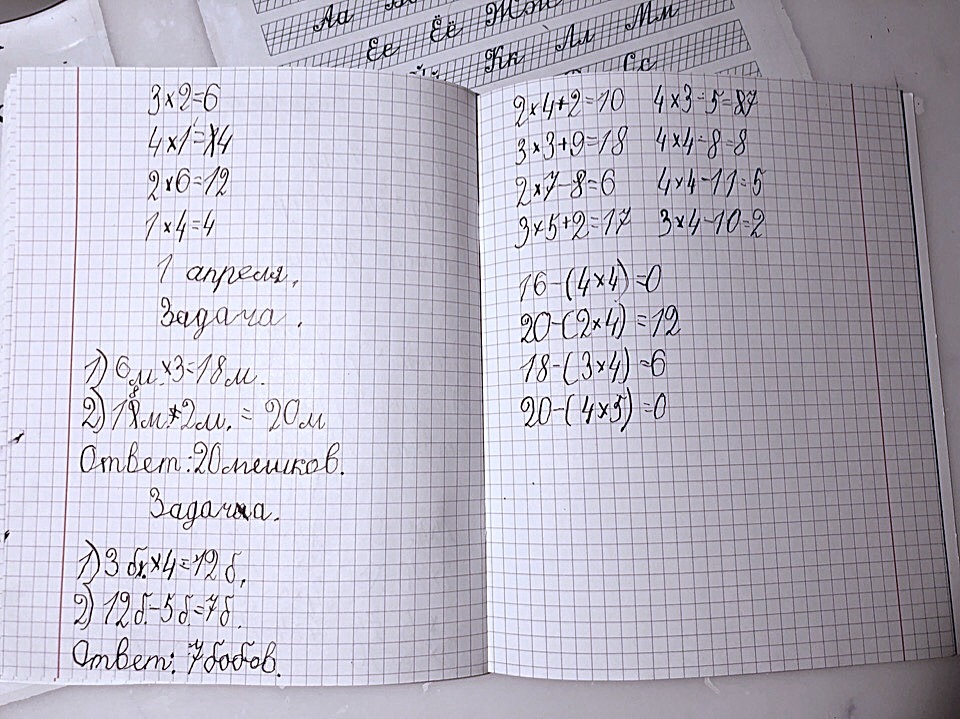 Аа
Ее Ёё Жж
Кк Лл Мм
Сс
3×2=6
4×1=4
2×6=12
1×4=4
1 апреля.
Задача.
1) 6м.×3=18м.
2) 18м.+2м. = 20м
Ответ: 20мешков.
Задача.
1) 3 б.×4=12б.
2) 12б.-5б.=7б.
Ответ: 7бобов.
2×4+2=10 4×3-5=7
3×3+9=18 4×4-8=8
2×7-8=6 4×4-11=5
3×5+2=17 3×4-10=2
16-(4×4)=0
20-(2×4)=12
18-(3×4)=6
20-(4×5)=0